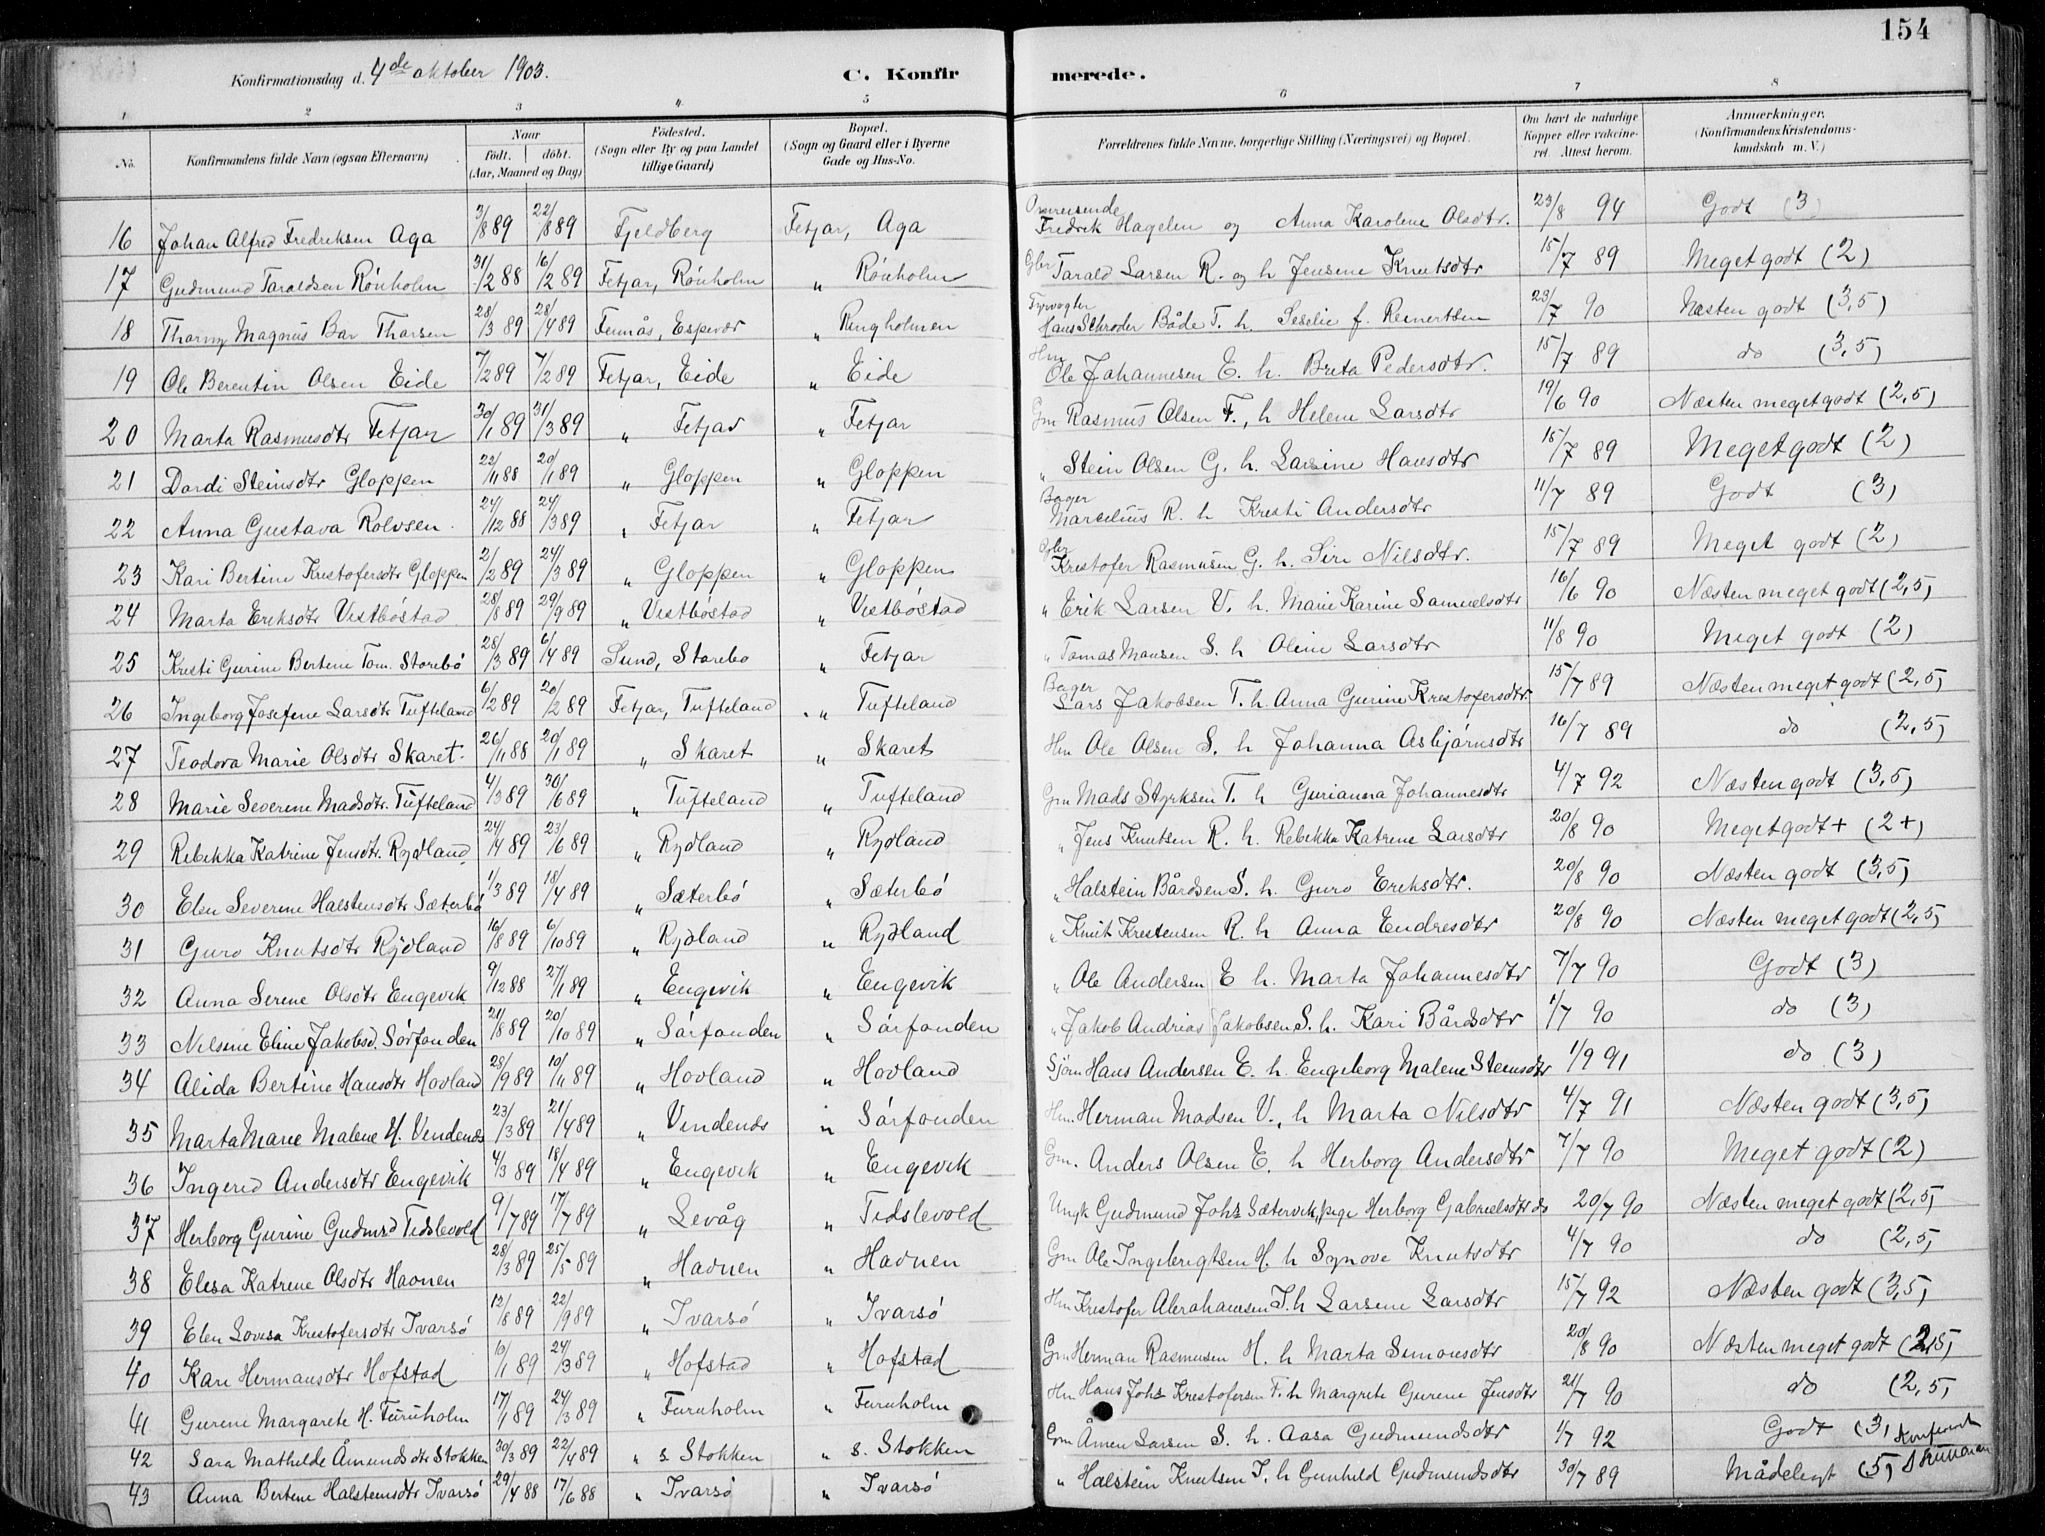 154
Konfirmationsdag d. 4de oktober 1903. C. Konfirmerede.
1 2 3 4 5 6 7 8
No. Konfirmandens fulde Navn (ogsaa Efternavn) Naar født. døbt. (Aar, Maaned og Dag) Fødested. (Sogn eller By og paa Landet tillige Gaard) Bopæl. (Sogn og Gaard eller i Byerne Gade og Hus-No. Forældrenes fulde Navne, borgerlige Stilling (Næringsvei) og Bopæl. Om havt de naturlige Kopper eller vakcineret. Attest herom. Anmærkninger. (Konfirmandens Kristendomskundskab m. V.)
16 Johan Alfred Fredriksen Aga 3/8 89 22/8 89 Fjeldberg Fetjar, Aga Omreisende Fredrik Hagelen og Anna Karolene Olsdtr. 23/8 94 Godt (3)
17 Gudmund Taraldsen Rönholm 31/12 88 16/2 89 Fetjar, Rönholm " Rönholm Gbr Tarald Larsen R. og h Jensene Knutsdtr 15/7 89 Meget godt (2)
18 Thorny Magnus Bar Thorsen 28/3 89 28/4 89 Finnås, Espevær " Ringholmen Fyrvogter Hans Schrøder Både T. h. Seselie f. Reinertsen 23/7 90 Næsten godt (3,5)
19 Ole Berentin Olsen Eide 7/2 89 7/2 89 Fetjar, Eide " Eide Hm Ole Johannesen E. h. Breta Pedersdtr. 15/7 89 do (3,5)
20 Marta Rasmusdtr Fetjar 30/1 89 31/3 89 " Fetjar " Fetjar Gm Rasmus Olsen F., h Helene Larsdtr 19/6 90 Næsten meget godt (2,5)
21 Dordi Steinsdtr Gloppen 22/11 88 20/1 89 " Gloppen " Gloppen " Stein Olsen G. h. Larsine Hansdtr 15/7 89 Meget godt (2)
22 Anna Gustava Rolvsen. 24/12 88 24/3 89 " Fetjar " Fetjar Bager Marselius R. h Kresti Andersdtr 11/7 89 Godt (3)
23 Kari Bertine Krestofersdtr Gloppen 2/2 89 24/3 89 " Gloppen " Gloppen Gbr Krestofer Rasmusen G. h. Siri Nilsdtr. 15/7 89 Meget godt (2)
24 Marta Eriksdtr Vestböstad 28/8 89 29/9 89 " Vestböstad " Vestböstad " Erik Larsen V. h. Marie Karine Samuelsdtr 16/6 90 Næsten meget godt (2,5)
25 Kresti Gurine Bertene Tom. Storebö 28/3 89 6/4 89 Sund, Storebö " Fetjar " Tomas Monsen S. h Oline Larsdtr 11/8 90 Meget godt (2)
26 Ingeborg Josefene Larsdtr Tufteland 6/12 89 20/2 89 Fetjar, Tufteland " Tufteland Bager Lars Jakobsen T. h. Anna Gurine Krestofersdtr 15/7 89 Næsten meget godt (2,5)
27 Teodora Marie Olsdtr Skaret. 26/11 88 20/1 89 " Skaret " Skaret Hm Ole Olsen S. h Johanna Asbjörnsdtr 16/7 89 do (2,5)
28 Marie Severene Madsdtr. Tufteland 4/3 89 30/6 89 " Tufteland " Tufteland Gm Mads Styrksen T. h Gurianna Johannesdtr 4/7 92 Næsten godt (3,5)
29 Rebekka Katrine Jensdtr. Rydland 24/4 89 23/6 89 " Rydland " Rydland " Jens Knutsen R. h. Rebekka Katrene Larsdtr 20/8 90 Meget godt + (2+)
30 Elen Severene Halstensdtr Sæterbö 1/3 89 18/4 89 " Sæterbö " Sæterbö " Halstein Bårdsen S. h. Guro Eriksdtr. 20/8 90 Næsten godt (3,5)
31 Guro Knutsdtr Rydland 16/8 89 6/10 89 " Rydland " Rydland " Knut Krestensen R. h Anna Endresdtr 20/8 90 Næsten meget godt (2,5)
32 Anna Serene Olsdtr Engevik 9/12 88 27/1 89 " Engevik " Engevik " Ole Andersen E h. Marta Johannesdtr 7/7 90 Godt (3)
33 Nilsine Eline Jakobsd. Sörfonden 21/8 89 20/10 89 " Sörfonden " Sörfonden " Jakob Andrias Jakobsen S. h. Kari Bårdsdtr 1/7 90 do (3)
34 Alida Bertine Hansdtr Hovland 28/9 89 10/11 89 " Hovland " Hovland Sjöm Hans Andersen E. h. Engeborg Malene Steensdtr 1/9 91 do (3)
35 Marta Marie Malene H. Vendenes 23/3 89 21/4 89 " Vendenes " Sörfonden Hm. Herman Madsen V., h Marta Nilsdtr 4/7 91 Næsten godt (3,5)
36 Ingerid Andersdtr Engevik 4/3 89 18/4 89 " Engevik " Engevik Gm. Anders Olsen E. h Herborg Andersdtr 7/7 90 Meget godt (2)
37 Herborg Gurine Gudmsd Tidslevold 9/7 89 17/7 89 " Levåg " Tidslevold Ungk Gudmund Johs Sætervik, pige Herborg Gabrielsdtr do 20/7 90 Næsten meget godt (2,5)
38 Elesa Katrene Olsdtr Havnen 28/3 89 25/5 89 " Havnen " Havnen Gm Ole Ingebrigtsen H. h Synove Knutsdtr 4/7 90 do (2,5)
39 Elen Lovisa Krestofersdtr Ivarsö 12/8 89 22/9 89 " Ivarsö " Ivarsö Hm Krestofer Abrahamsen I. h Larsene Larsdtr 15/7 92 Næsten godt (3,5)
40 Kari Hermansdtr Hofstad 10/1 89 24/3 89 " Hofstad " Hofstad Gm Herman Rasmusen H. h Marta Simonsdtr 20/8 90 Næsten meget godt (2,5)
41 Gurene Margarete H. Furuholm 17/1 89 24/3 89 " Furuholm " Furuholm Hm Hans Johs Krestofersen F. h Margrete Gurene Jensdtr 21/7 90 do (2,5)
42 Sara Mathilde Åmundsdtr Stokken 30/3 89 22/4 89 " s. Stokken " s. Stokken Gm Åmen Larsen S. h. Aasa Gudmundsdtr 1/7 92 Godt (3)
43 Anna Bertene Halstensdtr Ivarsö 29/4 88 17/6 88 " Ivarsö " Ivarsö " Halstein Knutsen I. h Gunhild Gudmundsdtr 30/7 89 Mådelegt (5)